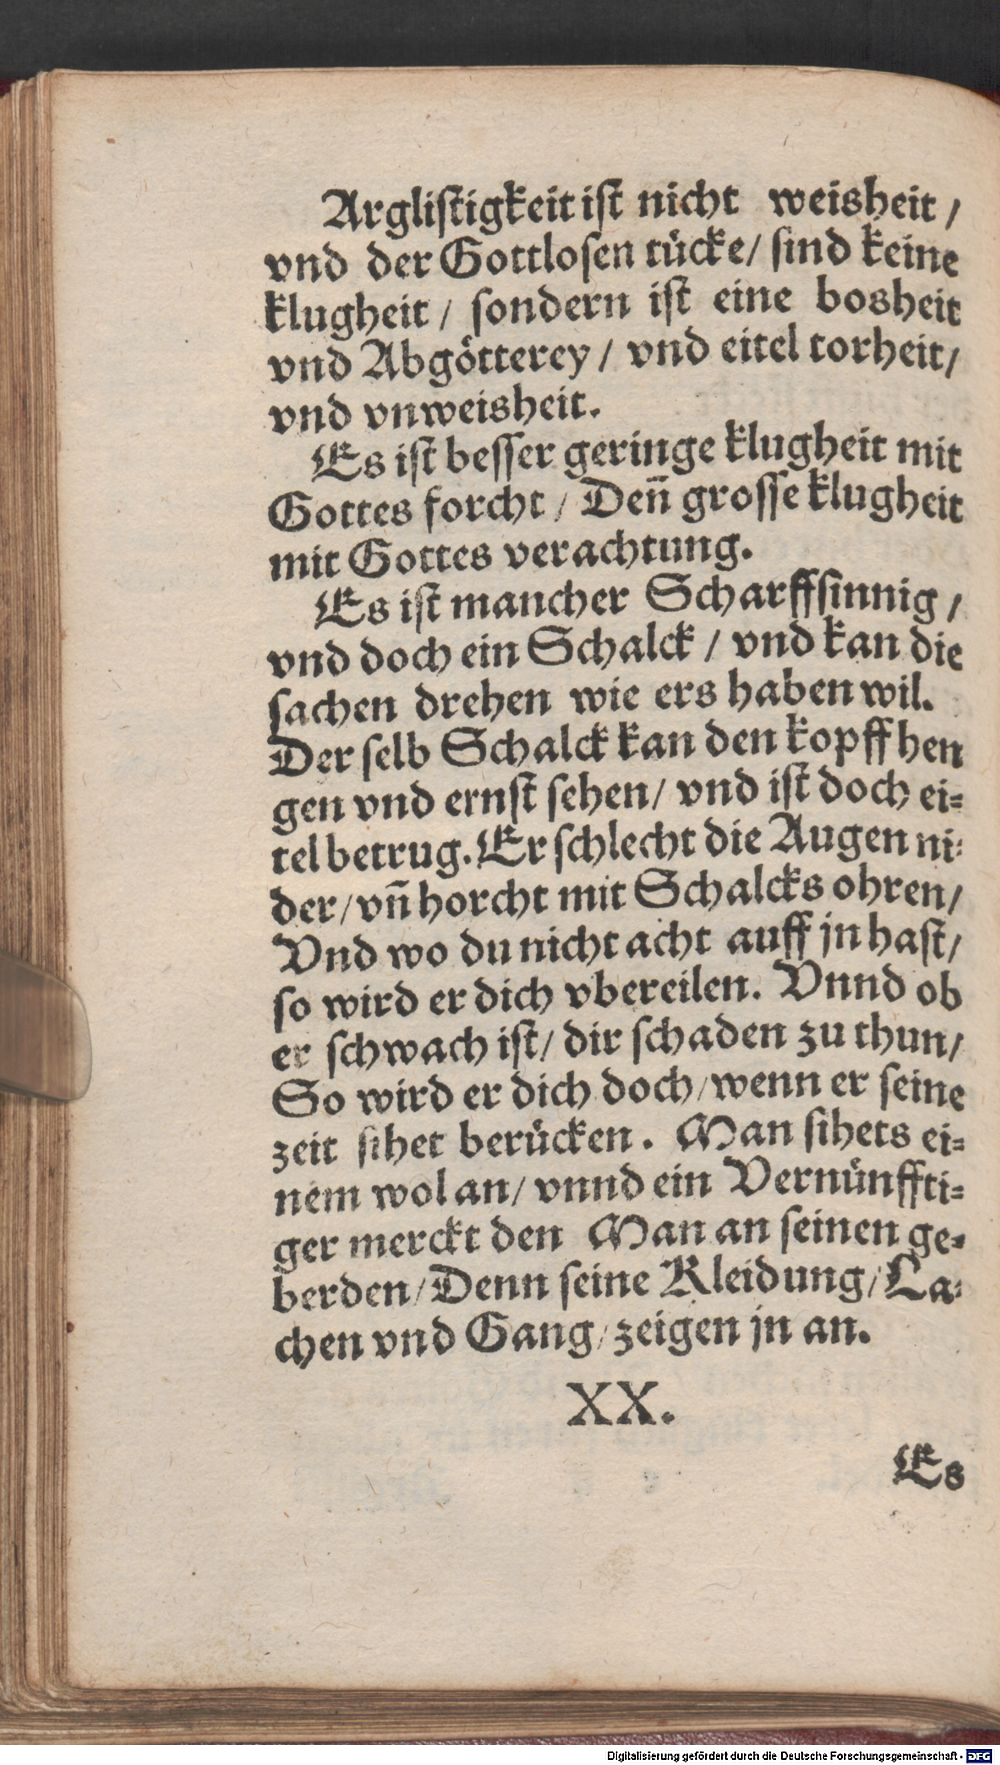 Arglistigkeit ist nicht weisheit /
vnd der Gottlosen tücke / sind keine
klugheit / sondern ist eine bosheit
vnd Abgötterey / vnd eitel torheit /
vnd vnweisheit.
Es ist besser geringe klugheit mit
Gottes forcht / Den̄ grosse klugheit
mit Gottes verachtung.
Es ist mancher Scharffsinnig /
vnd doch ein Schalck / vnd kan die
sachen drehen wie ers haben wil.
Der selb Schalck kan den kopff hen
gen vnd ernst sehen / vnd ist doch ei=
tel betrug. Er schlecht die Augen ni=
der / vn̄ horcht mit Schalcks ohren /
Vnd wo du nicht acht auff jn hast /
so wird er dich vbereilen. Vnnd ob
er schwach ist / dir schaden zu thun /
So wird er dich doch / wenn er seine
zeit sihet berücken. Man sihets ei=
nem wol an / vnnd ein Vernünffti=
ger merckt den Man an seinen ge=
berden / Denn seine Kleidung / La=
chen vnd Gang / zeigen jn an.
XX.
Es
Digitalisierung gefördert durch die Deutsche Forschungsgemeinschaft - DFG